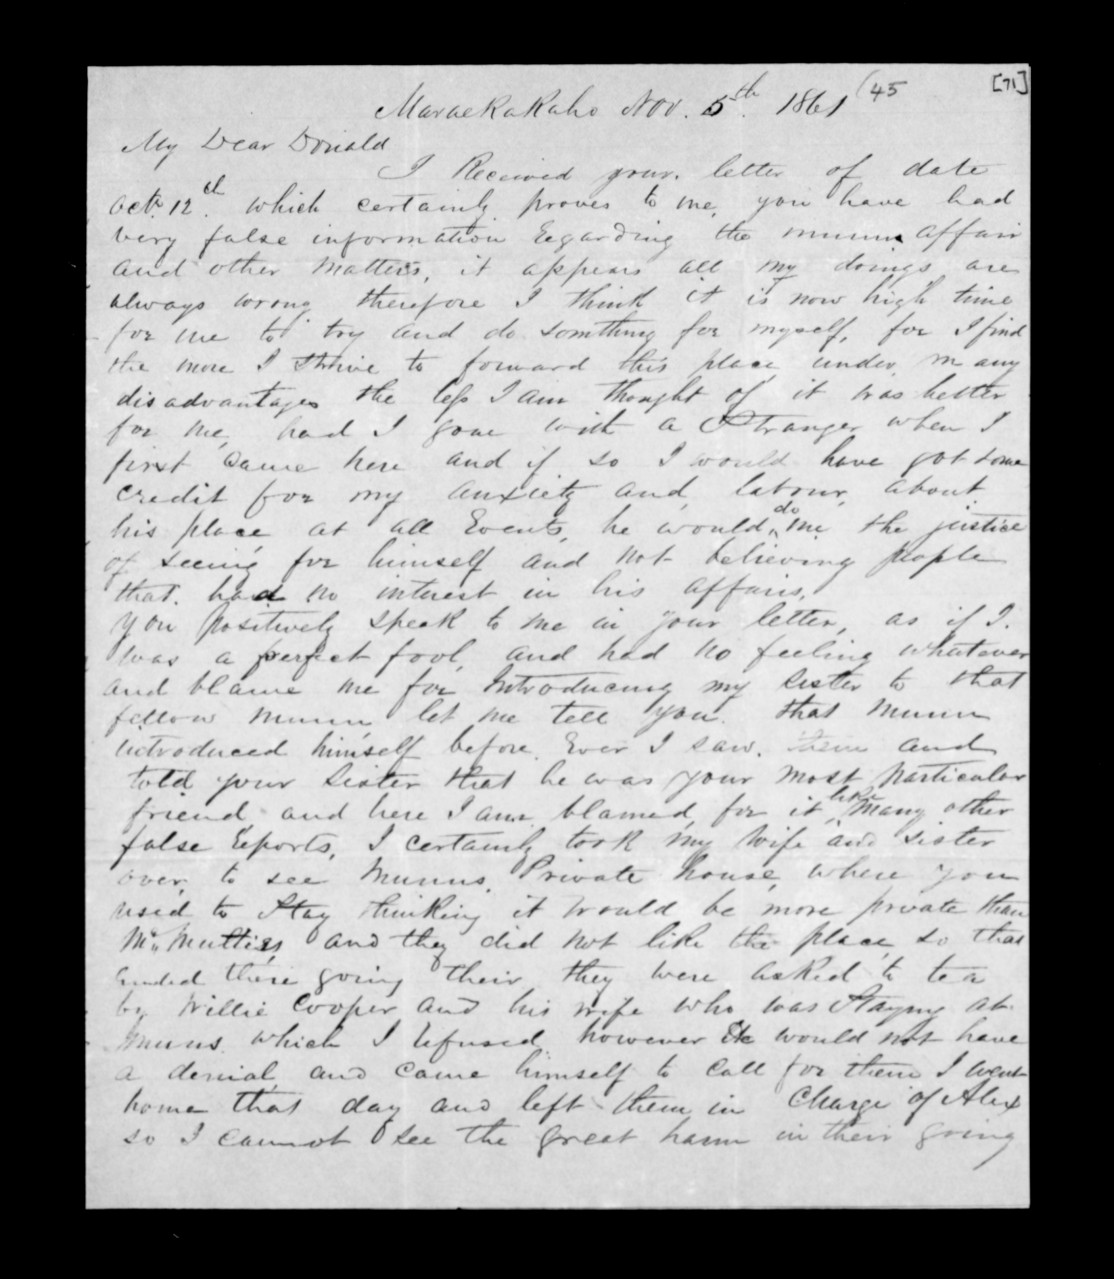 (45
[71]
Maraekakaho Nov. 5th. 1861
My Dear Donald
I Received your letter of date
Octr. 12th. which certainly proves to me, you have had
very false information Regarding the munn affair
and other matters, it appears all my doings are
always wrong therefore I think it is now high time
for me to try and do somthing for myself, for I find
the more I strive to forward this place under many
disadvantages the less I am thought of it was better
for me, had I gone with a Stranger when I
first came here and if so I would have got some
credit for my anxiety and labour, about
his place at all Events, he would do me the justice
of seeing for himself and not believing people
that had no interest in his affairs.
You positively speak to me in your letter, as if I
was a perfect fool, and had no feeling whatever
and blame me for Introducing my sister to that
fellow munn let me tell you that munn
introduced himself before Ever I saw them and
told your sister that he was your most particular
friend and here I am blamed for it, like many other
false Reports, I certainly took my wife and sister
over, to see Munns Private house, where you
used to Stay thinking it would be more private than
and they did not like the place, so that
Ended there going their they were asked to tea
by Willie Cooper and his wife who was Staying at
Munns which I Refused, however He would not have
a denial, and came himself to call for them I went
home that day and left them in Charge of Alex
so I cannot see the great harm in their going